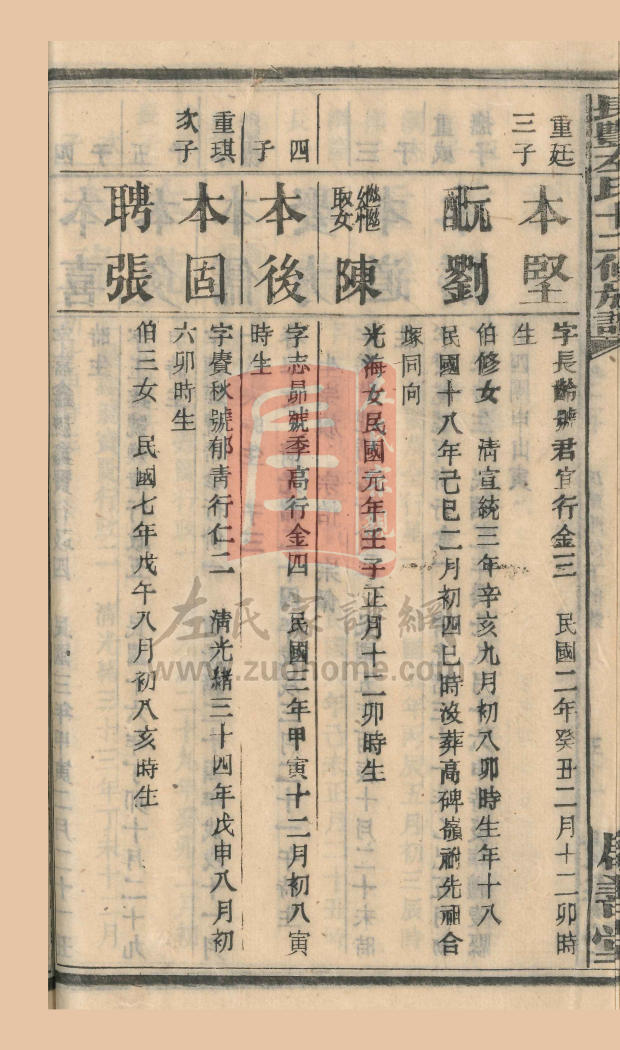 重廷
三子
本堅
字長齡號君宜行金三　民國二年癸丑二月十二卯時
生
配劉
伯修女　清宣統三年辛亥九月初八卯時生年十八
民國十八年己巳二月初四巳時沒葬高碑嶺祔先祖合
塚同向
繼娶
陳
光海女民國元年壬子正月十二卯時生
四
子
本後
字志昴號季高行金四　民國三年甲寅十二月初八寅
時生
重琪
次子
本固
字賚秋號郁青行仁二　清光緒三十四年戊申八月初
六卯時生
聘張
伯三女　民國七年戊午八月初八亥時生
左氏家譜網
www.zuohome.com